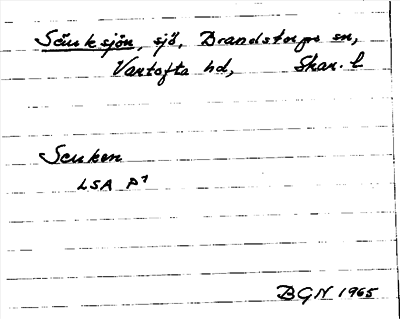 Sänksjön, sjö, Brandstorps sn,
Vartofta hd, Skar. l
Senken
LSA P¹
BGN 1965